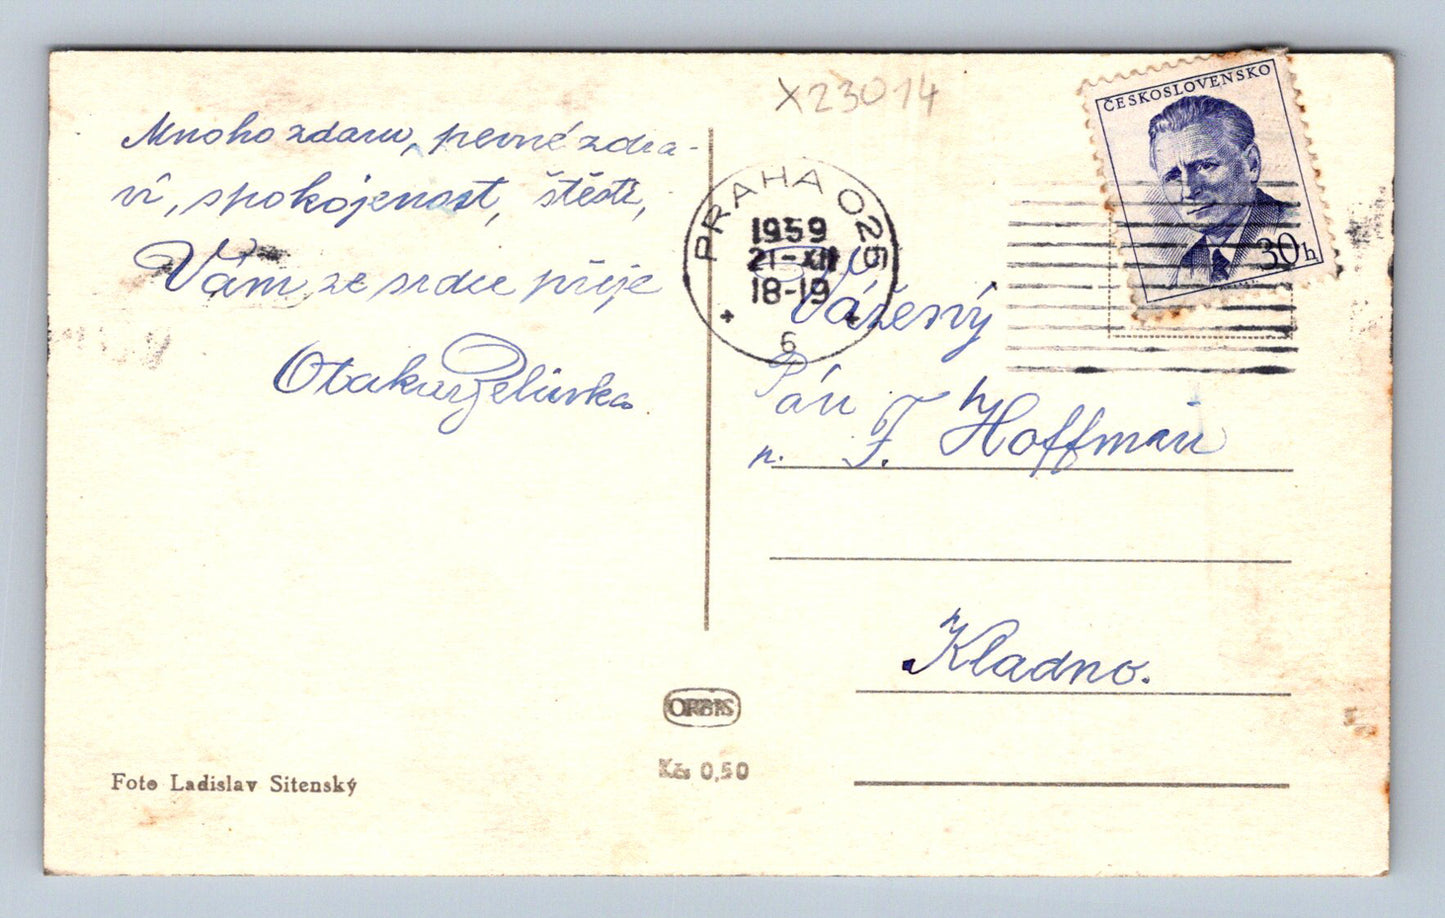 X23014
ČESKOSLOVENSKO
30h
PRAHA 025
1959
21-XII
18-19
6
Mnoho zdaru, pevné zdra-
ví, spokojenost, štěstí,
Vám ze srdce přeje
Otakar
Vážený
Pán
p. F. Hoffman
Kladno.
ORBIS
Kčs 0,50
Foto Ladislav Sitenský